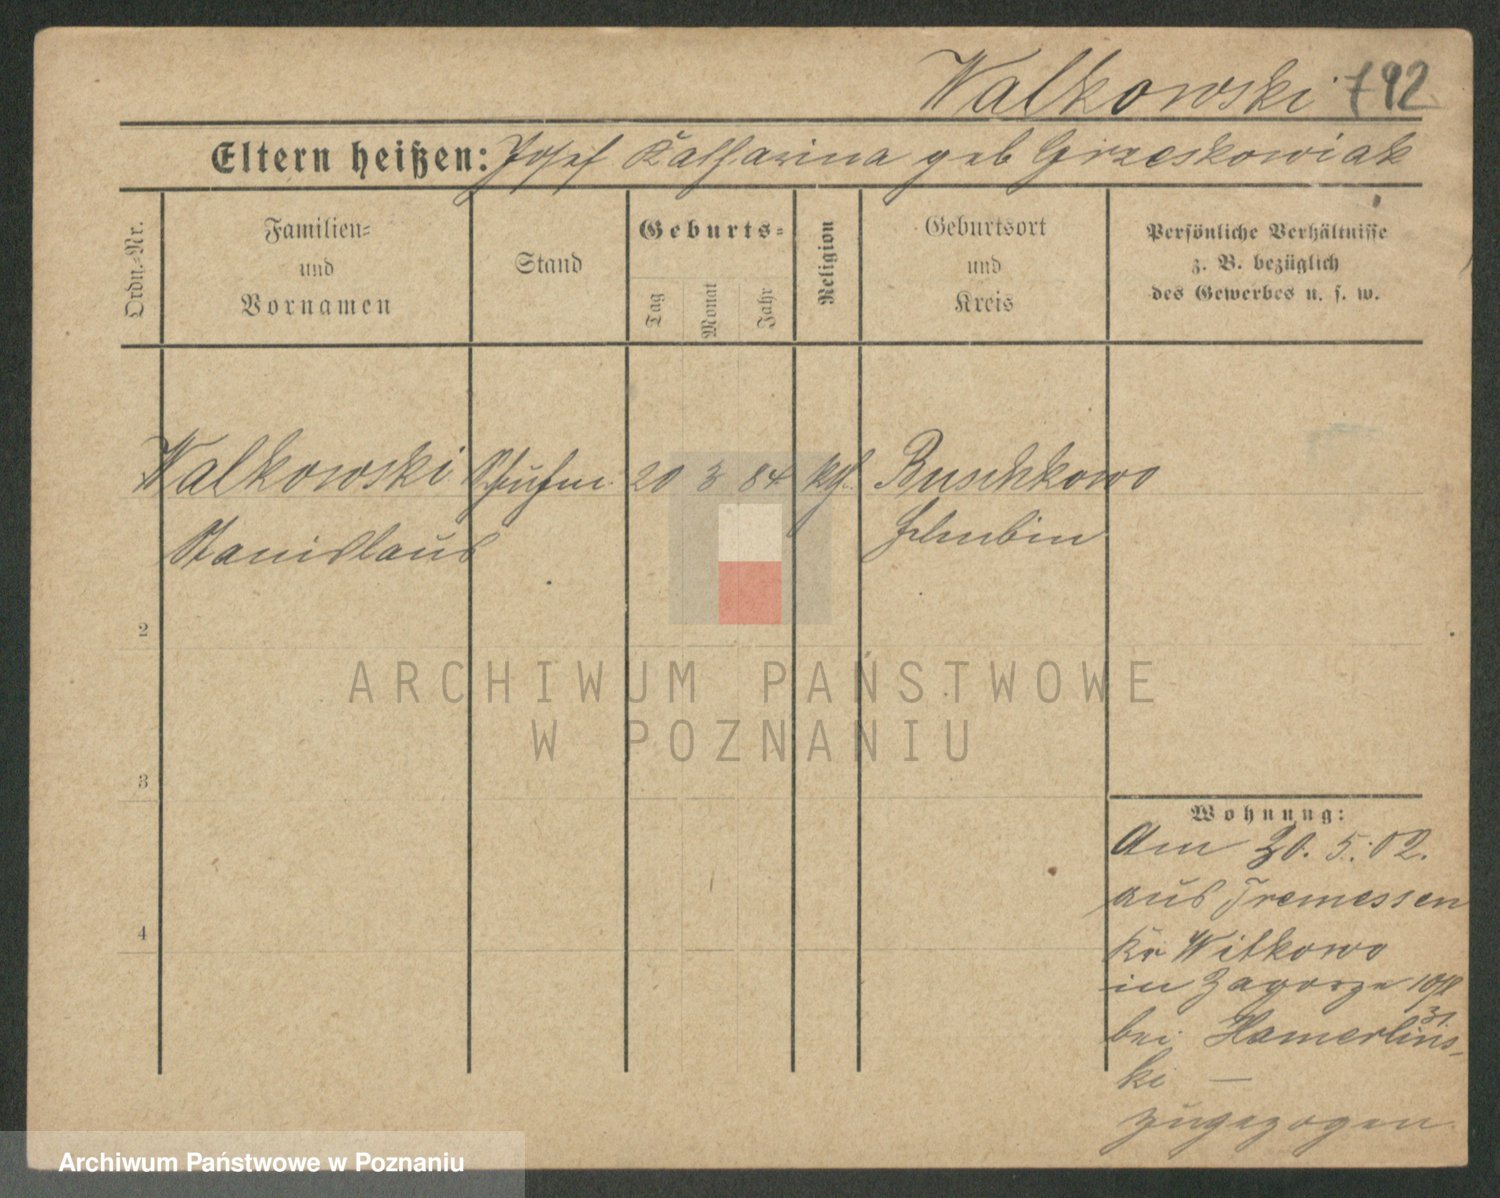 Walkowski 792
Eltern heißen: Josef Katharina geb Grzeskowiak
Ordn.-Nr.
Familien-
und
Vornamen
Stand
Geburts-
Tag
Monat
Jahr
Religion
Geburtsort
und
Kreis
Persönliche Verhältnisse
z. B. bezüglich
des Gewerbes u. s. w.
Walkowski 20 3 84 Buschkowo
Stanislaus Schubin
2
3
4
Wohnung:
Am 20. 5. 02.
aus Tremessen
Kr Witkowo
in Zagorze
bei Hamerlins-
ki —
zugezogen
ARCHIWUM PAŃSTWOWE
W POZNANIU
Archiwum Państwowe w Poznaniu